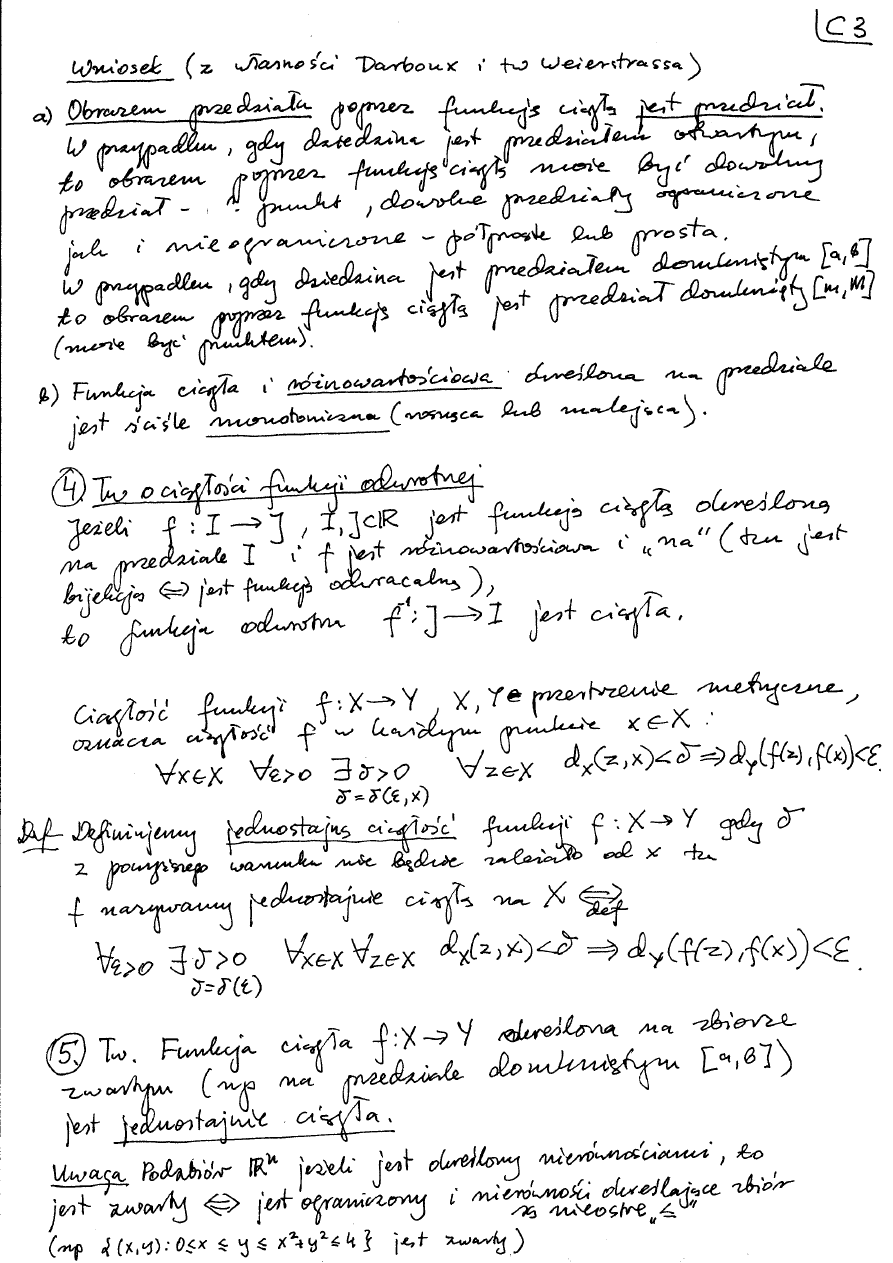 C3
Wniosek (z własności Darboux i tw Weierstrassa)
a) Obrazem przedziału poprzez funkcję ciągłą jest przedział.
W przypadku, gdy dziedzina jest przedziałem otwartym,
to obrazem poprzez funkcję ciągłą może być dowolny
przedział - punkt, dowolne przedziały ograniczone
jak i nieograniczone - półproste lub prosta.
W przypadku, gdy dziedzina jest przedziałem domkniętym [a,b]
to obrazem poprzez funkcję ciągłą jest przedział domknięty [m,M]
(może być punktem).
b) Funkcja ciągła i różnowartościowa określona na przedziale
jest ściśle monotoniczna (rosnąca lub malejąca).
④ Tw o ciągłości funkcji odwrotnej
Jeżeli f : I → J , I, J ⊂ ℝ jest funkcją ciągłą określoną
na przedziale I i f jest różnowartościowa i „na" (tzn jest
bijekcją ⇔ jest funkcją odwracalną),
to funkcja odwrotna f⁻¹: J → I jest ciągła.
Ciągłość funkcji f: X → Y, X, Y przestrzenie metryczne,
oznacza ciągłość f w każdym punkcie x ∈ X :
∀x∈X ∀ε>0 ∃δ>0 ∀z∈X d_X(z,x)<δ ⇒ d_Y(f(z),f(x))<ε.
δ=δ(ε,x)
Def Definiujemy jednostajną ciągłość funkcji f : X → Y gdy δ
z powyższego warunku nie będzie zależało od x tzn
f nazywamy jednostajnie ciągłą na X ⇔
def
∀ε>0 ∃δ>0 ∀x∈X ∀z∈X d_X(z,x)<δ ⇒ d_Y(f(z),f(x))<ε.
δ=δ(ε)
⑤ Tw. Funkcja ciągła f:X → Y określona na zbiorze
zwartym (np na przedziale domkniętym [a,b])
jest jednostajnie ciągła.
Uwaga Podzbiór ℝⁿ jeżeli jest określony nierównościami, to
jest zwarty ⇔ jest ograniczony i nierówności określające zbiór
są nieostre „≤"
(np {(x,y): 0≤x ≤ y ≤ x²+y² ≤ 4} jest zwarty)